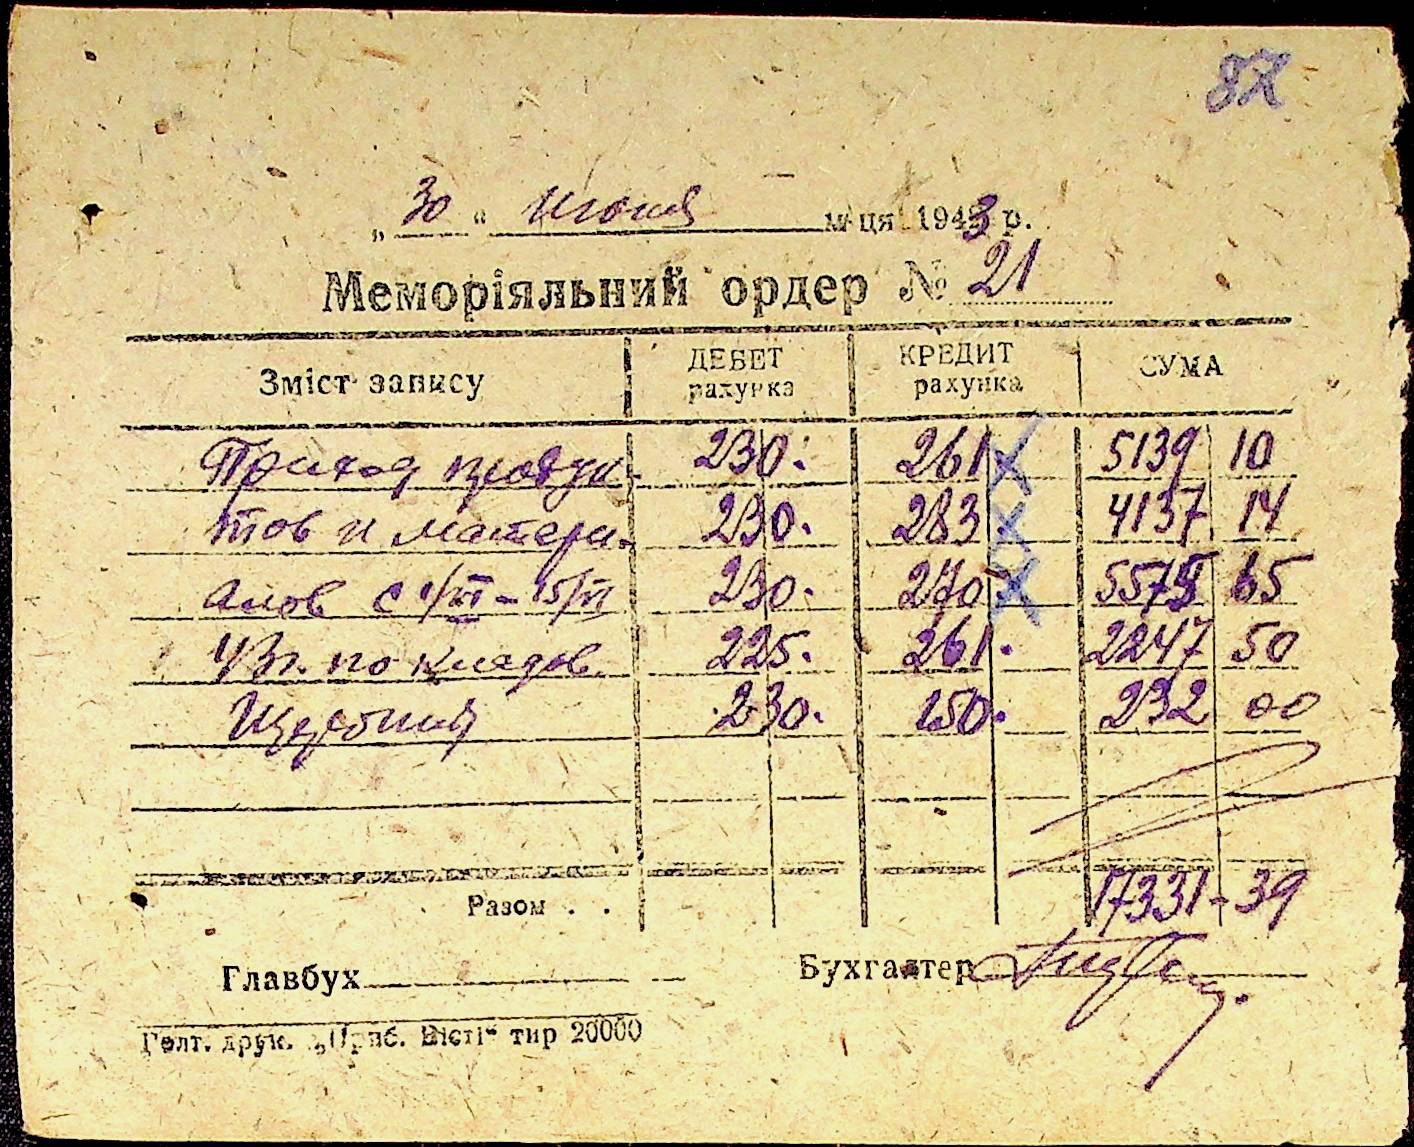 87
„ 30 “ июня м-ця 1943 р.
Меморіяльний ордер № 21
Зміст запису ДЕБЕТ рахунка КРЕДИТ рахунка СУМА
Приход продук- 230. 261 5139 10
тов и матери- 230. 283 4137 14
алов с 1/VI - 15/VI 230. 270 5575 65
43г. по кладов. 225. 261. 2247 50
230. 150. 232 00
Разом . . 17331-39
Главбух Бухгалтер
Голт. друк. „Приб. Вісті“ тир 20000